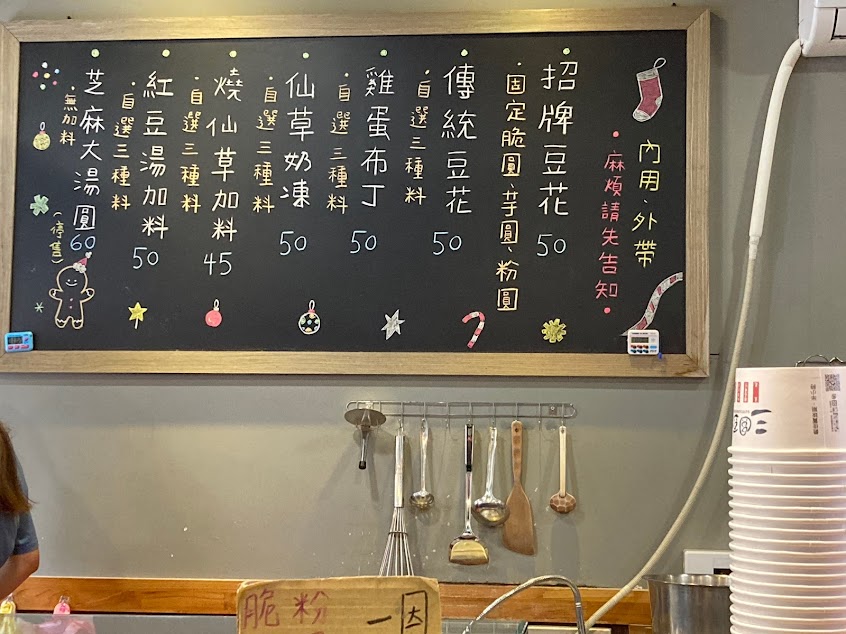 內用、外帶
•麻煩請先告知•
招牌豆花 50
•固定脆圓、芋圓、粉圓
傳統豆花 50
•自選三種料
雞蛋布丁 50
•自選三種料
仙草奶凍 50
•自選三種料
燒仙草加料 45
•自選三種料
紅豆湯加料 50
•自選三種料
芝麻大湯圓 60
•無加料
(停售)
脆粉一因